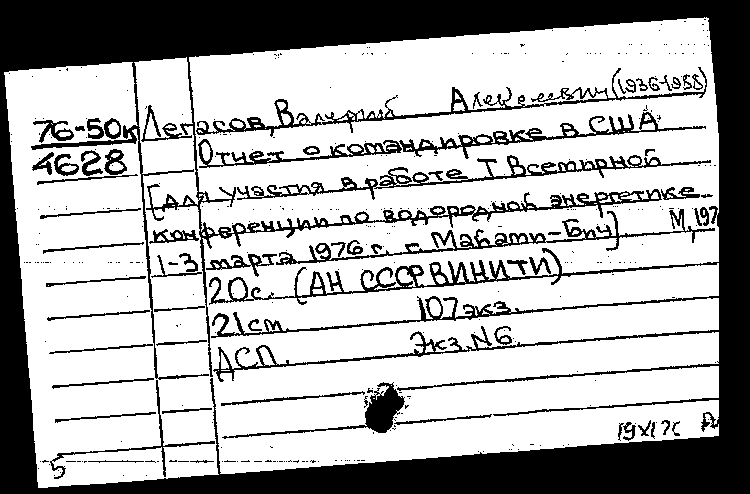 76-50к Легасов, Валерий Алексеевич (1936-1988)
4628 Отчет о командировке в США
[для участия в работе I Всемирной
конференции по водородной энергетике
1-3 марта 1976 г. г. Майами-Бич] М, 197
20с. (АН СССР ВИНИТИ)
21см. 107 экз.
ДСП. Экз. N6.
19XI76
5